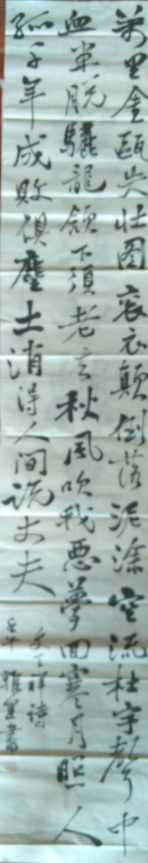 萬里金甌失壯圖衮衣顛倒落泥塗空流杜宇聲中
血半脫驪龍頷下須老去秋風吹我惡夢回寒月照人
孤千年成敗俱塵土消得人間說丈夫
文天祥詩